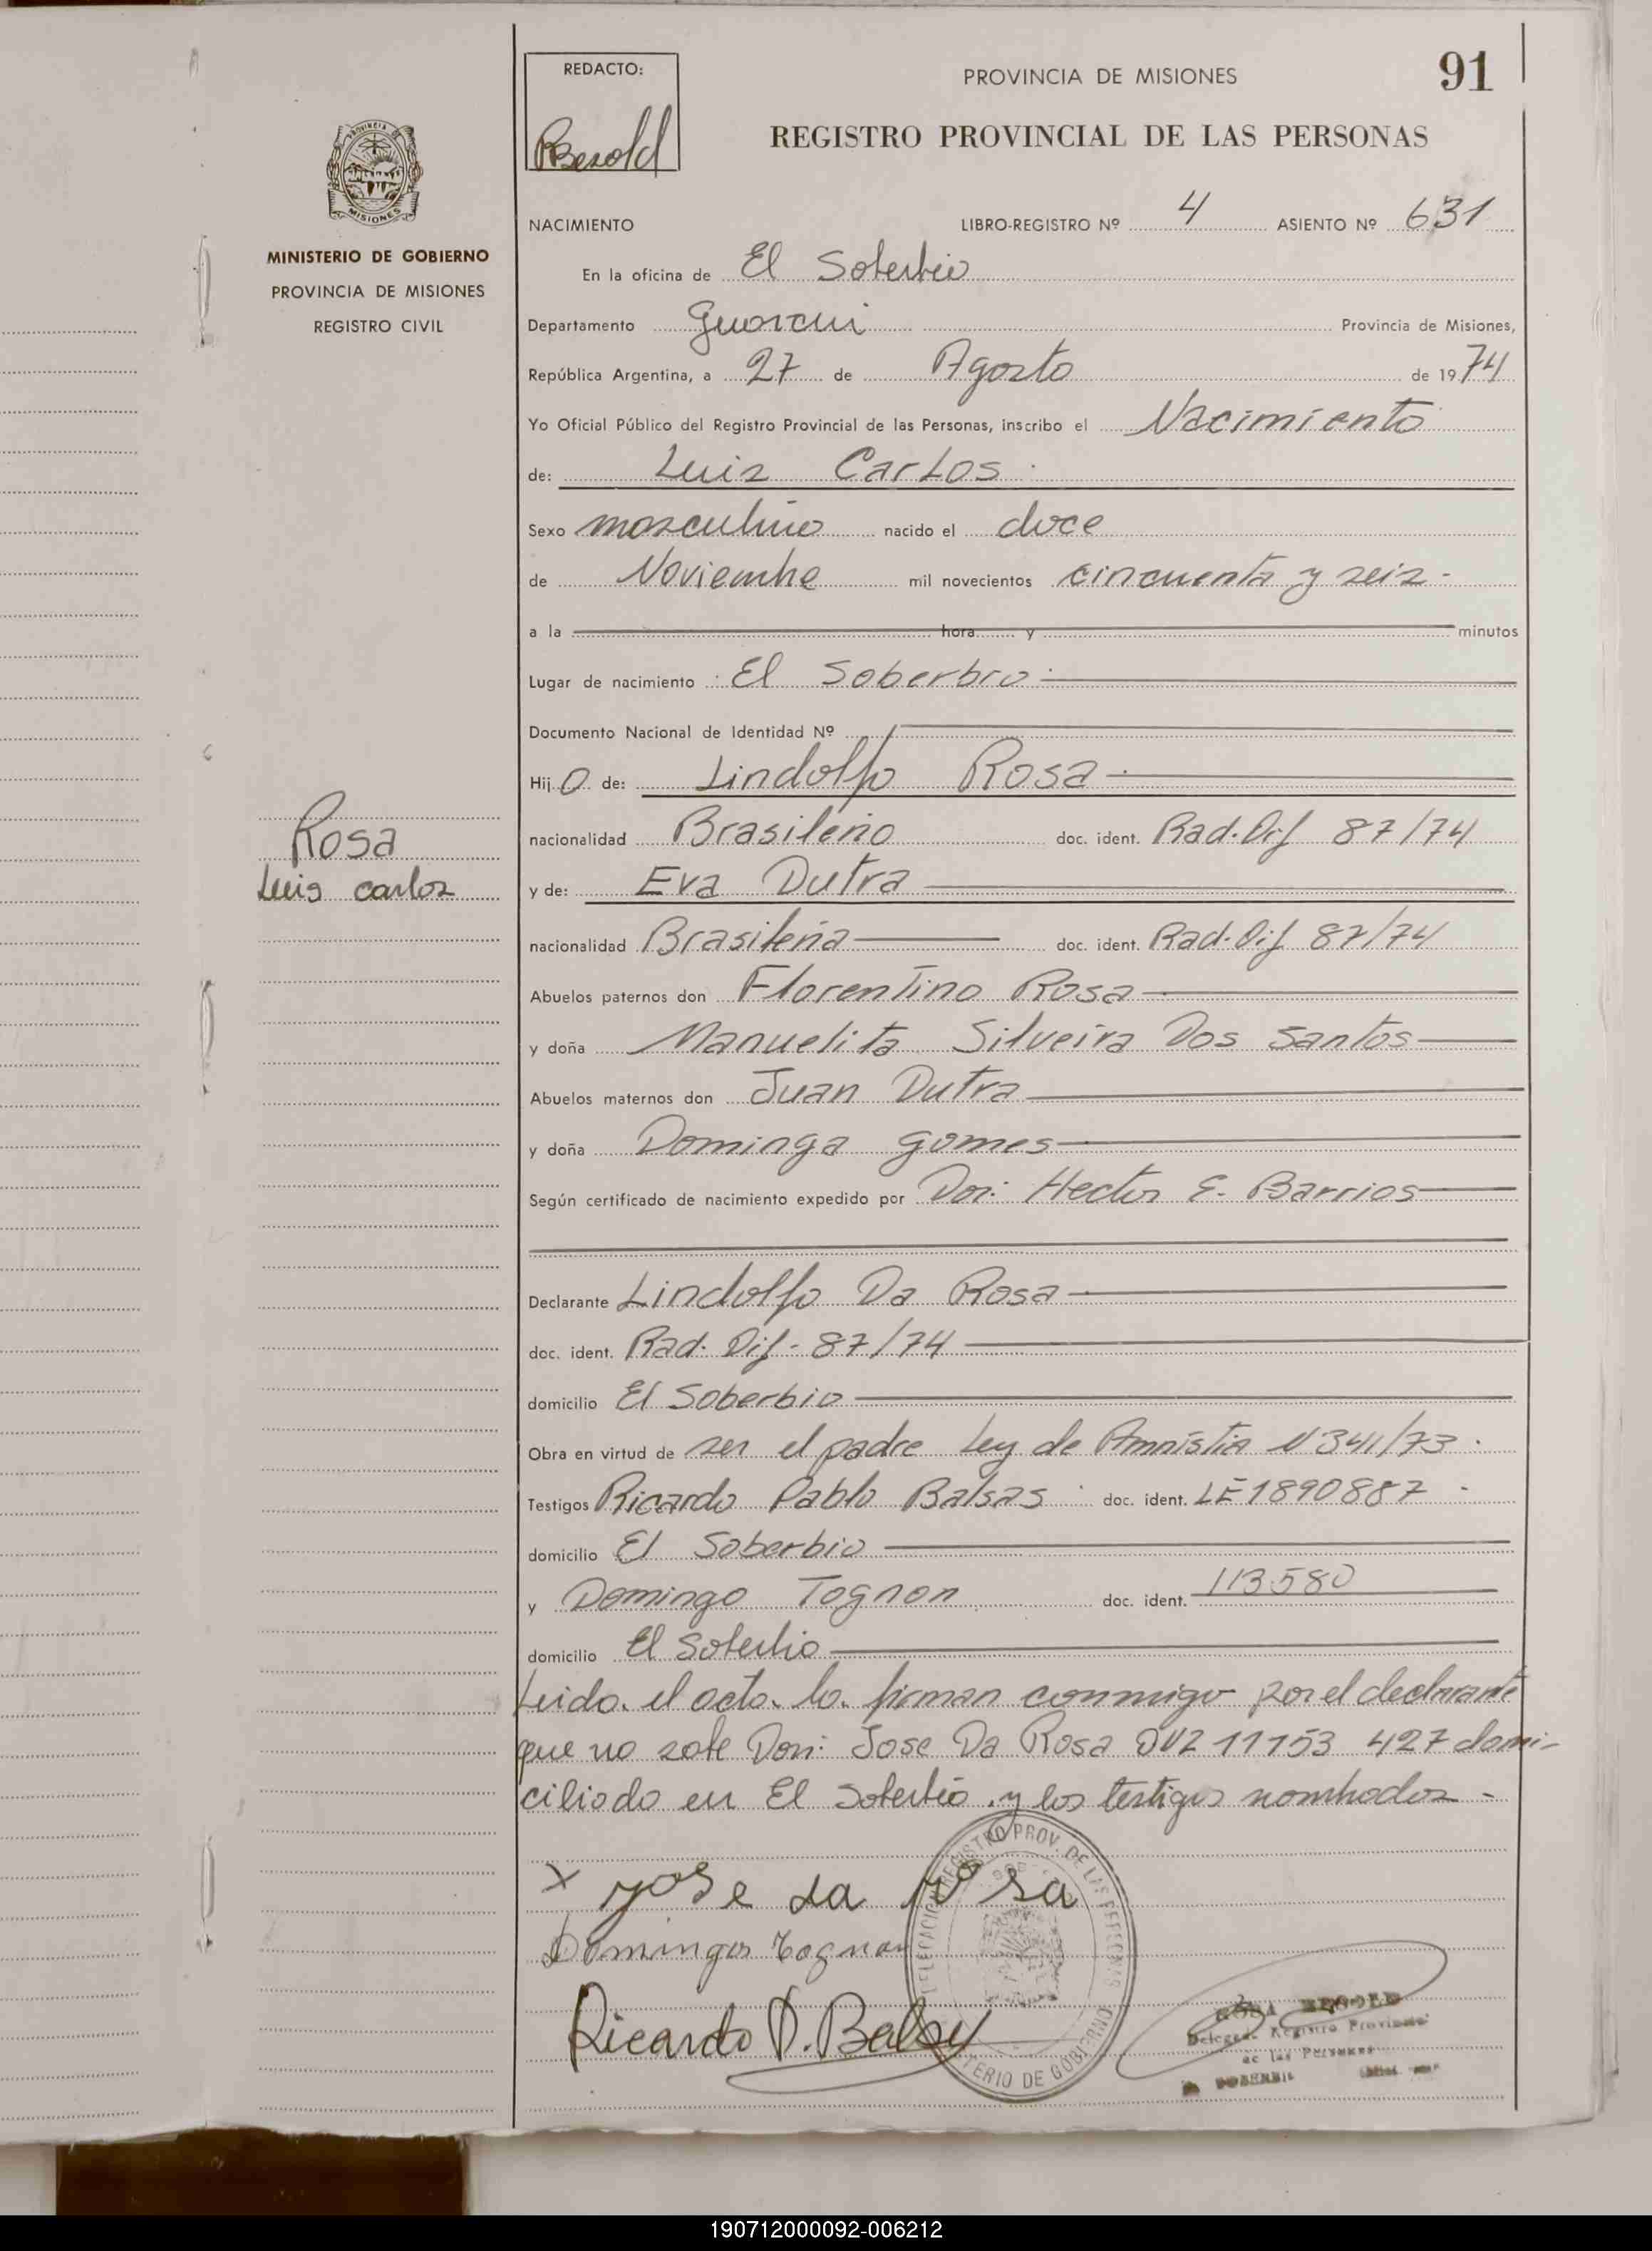 91
REDACTO:
RBezold
PROVINCIA DE MISIONES
REGISTRO PROVINCIAL DE LAS PERSONAS
PROVINCIA DE
MISIONES
MINISTERIO DE GOBIERNO
PROVINCIA DE MISIONES
REGISTRO CIVIL
NACIMIENTO LIBRO-REGISTRO Nº 4 ASIENTO Nº 631
En la oficina de El Soberbio
Departamento Guarani Provincia de Misiones,
República Argentina, a 27 de Agosto de 19 74
Yo Oficial Público del Registro Provincial de las Personas, inscribo el Nacimiento
de: Luis Carlos.
Sexo masculino nacido el doce
de Noviembre mil novecientos cincuenta y seis -
a la hora y minutos
Lugar de nacimiento El Soberbio
Documento Nacional de Identidad Nº
Hij o de: Lindolfo Rosa
Rosa
Luis Carlos
nacionalidad Brasileño doc. ident. Rad. Dif 87/74
y de: Eva Dutra
nacionalidad Brasileña doc. ident. Rad. Dif 87/74
Abuelos paternos don Florentino Rosa
y doña Manuelita Silveira Dos Santos
Abuelos maternos don Juan Dutra
y doña Dominga Gomes
Según certificado de nacimiento expedido por Don: Hector E. Barrios
Declarante Lindolfo Da Rosa
doc. ident. Rad. Dif - 87/74
domicilio El Soberbio
Obra en virtud de ser el padre Ley de Amnistia N 341/73.
Testigos Ricardo Pablo Balsas doc. ident. LE 1890887 -
domicilio El Soberbio
y Domingo Tognon doc. ident. 113580
domicilio El Soberbio
Leida el acta la firman conmigo por el declarante
que no sabe Don: Jose Da Rosa 11153 427 domi-
ciliado en El Soberbio y los testigos nombrados -
x yose da rosa
Domingos Tognon
Ricardo P.
REGISTRO PROV. DE LAS PERSONAS
DELEGACION
MINISTERIO DE GOBIERNO
ROSA BEZOLD
Delegada Registro Provincial
de las Personas
SOBERBIO
190712000092-006212